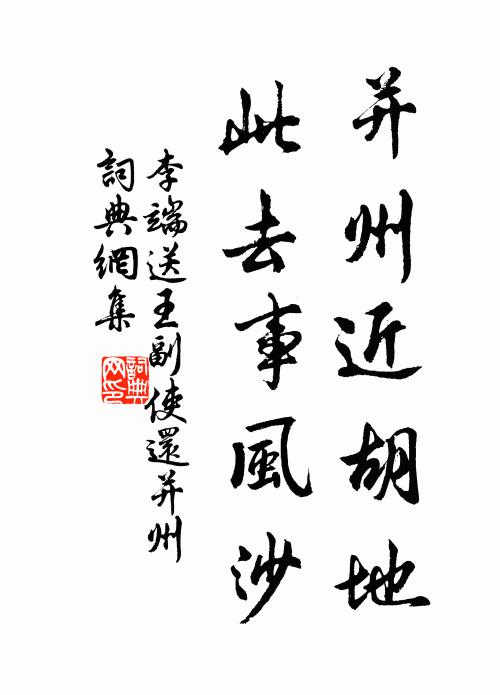 并州近胡地
此去事風沙
李端送王副使還并州
詞典網集
詞典網印